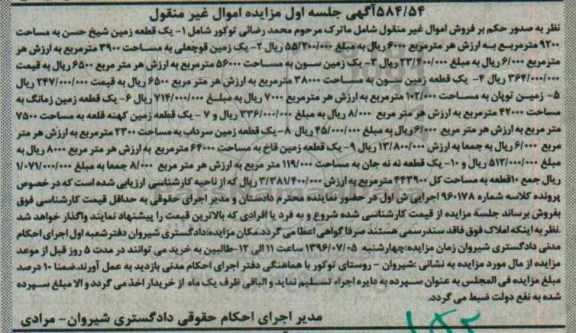 ۵۸۴/۵۴آگهی جلسه اول مزایده اموال غیر منقول
نظر به صدور حکم بر فروش اموال غیر منقول شامل ماترک مرحوم محمد رضائی توکور شامل ۱- یک قطعه زمین شیخ حسن به مساحت
۹۲۰۰ مترمربع به ارزش هر مترمربع ۶۰۰۰ ریال به مبلغ ۵۵/۲۰۰/۰۰۰ ریال ۲- یک زمین قوچعلی به مساحت ۳۹۰۰ مترمربع به ارزش هر
متر مربع ۶/۰۰۰ ریال به مبلغ ۲۳/۴۰۰/۰۰۰ ریال ۳- یک زمین سون به مساحت ۵۶۰۰۰ مترمربع به ارزش هر متر مربع ۶۵۰۰ ریال به قیمت
۳۶۴/۰۰۰/۰۰۰ ریال ۴- یک قطعه زمین سون به مساحت ۳۸۰۰۰ مترمربع به ارزش هر متر مربع ۶۵۰۰ ریال به قیمت ۲۴۷/۰۰۰/۰۰۰ ریال
۵- زمین توپان به مساحت ۱۰۲/۰۰۰ مترمربع به ارزش هر مترمربع ۷۰۰۰ ریال به مبلغ ۷۱۴/۰۰۰/۰۰۰ ریال ۶- یک قطعه زمین زمانگ به
مساحت ۴۲۰۰۰ مترمربع به ارزش هر متر مربع ۸/۰۰۰ ریال به مبلغ ۳۳۶/۰۰۰/۰۰۰ ریال و ۷- یک قطعه زمین کهنه قلعه به مساحت ۷۵۰۰
مترمربع به ارزش هر متر مربع ۶/۰۰۰ ریال به مبلغ ۴۵/۰۰۰/۰۰۰ ریال ۸- یک قطعه زمین سرداب به مساحت ۲۳۰۰ مترمربع به ارزش هر متر
مربع ۶/۰۰۰ ریال به جمعا به ارزش ۱۳/۸۰۰/۰۰۰ ریال ۹- یک قطعه زمین قاخ به مساحت ۶۴۰۰۰ مترمربع به ارزش هر متر مربع ۸۰۰۰ ریال به
مبلغ ۵۱۲/۰۰۰/۰۰۰ ریال و ۱۰- یک قطعه نه نه جان به مساحت ۱۱۹/۰۰۰ متر مربع به ارزش هر متر مربع ۸/۰۰۰ جمعا به مبلغ ۱/۰۷۱/۰۰۰/۰۰۰
ریال جمع ۱۰قطعه به مساحت کل ۴۴۳۹۰۰ مترمربع به ارزش ۳/۳۸۱/۴۰۰/۰۰۰ ریال که از ناحیه کارشناسی ارزیابی شده است که در خصوص
پرونده کلاسه شماره ۹۶۰۱۷۸ اجرایی ش اول در حضور نماینده محترم دادستان و مدیر اجرای حقوقی به حداقل قیمت کارشناسی فوق
بفروش برساند جلسه مزایده از قیمت کارشناسی شده شروع و به فرد یا افرادی که بالاترین قیمت را پیشنهاد نمایند واگذار خواهد شد
نظر به اینکه املاک فوق فاقد سندرسمی هستند صرفا گواهی اعطا می گردد.مکان مزایده:دادگستری شیروان دفترشعبه اول اجرای احکام
مدنی دادگستری شیروان زمان مزایده:چهارشنبه ۱۳۹۶/۰۷/۰۵ ساعت ۱۱ الی ۱۲-طالبین به خرید می توانند در مدت ۵ روز قبل از موعد
مزایده از مال مورد مزایده به نشانی :شیروان - روستای توکور با هماهنگی دفتر اجرای احکام مدنی بازدید به عمل آورند.ضمنا ۱۰ درصد
مبلغ مزایده فی المجلس به عنوان سپرده به دایره اجراء تسلیم نماید و الباقی ظرف یک ماه از خریدار اخذ می گردد و الا مبلغ سپرده
شده به نفع دولت ضبط می گردد.
مدیر اجرای احکام حقوقی دادگستری شیروان- مرادی